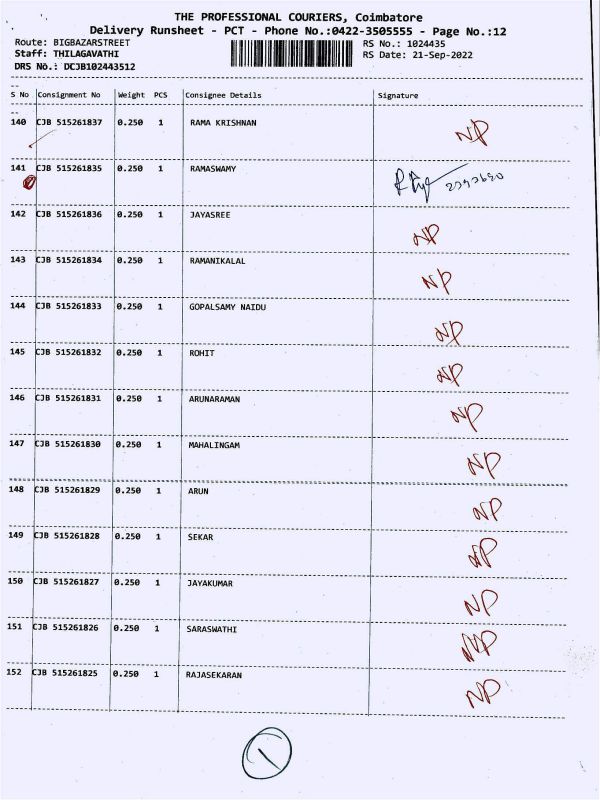 THE PROFESSIONAL COURIERS, Coimbatore
Delivery Runsheet - PCT - Phone No.:0422-3505555 - Page No.:12
Route: BIGBAZARSTREET RS No.: 1024435
Staff: THILAGAVATHI RS Date: 21-Sep-2022
DRS No.: DCJB102443512
S No Consignment No Weight PCS Consignee Details Signature
140 CJB 515261837 0.250 1 RAMA KRISHNAN NP
141 CJB 515261835 0.250 1 RAMASWAMY
142 CJB 515261836 0.250 1 JAYASREE NP
143 CJB 515261834 0.250 1 RAMANIKALAL NP
144 CJB 515261833 0.250 1 GOPALSAMY NAIDU NP
145 CJB 515261832 0.250 1 ROHIT NP
146 CJB 515261831 0.250 1 ARUNARAMAN NP
147 CJB 515261830 0.250 1 MAHALINGAM NP
148 CJB 515261829 0.250 1 ARUN NP
149 CJB 515261828 0.250 1 SEKAR NP
150 CJB 515261827 0.250 1 JAYAKUMAR NP
151 CJB 515261826 0.250 1 SARASWATHI NP
152 CJB 515261825 0.250 1 RAJASEKARAN NP
1